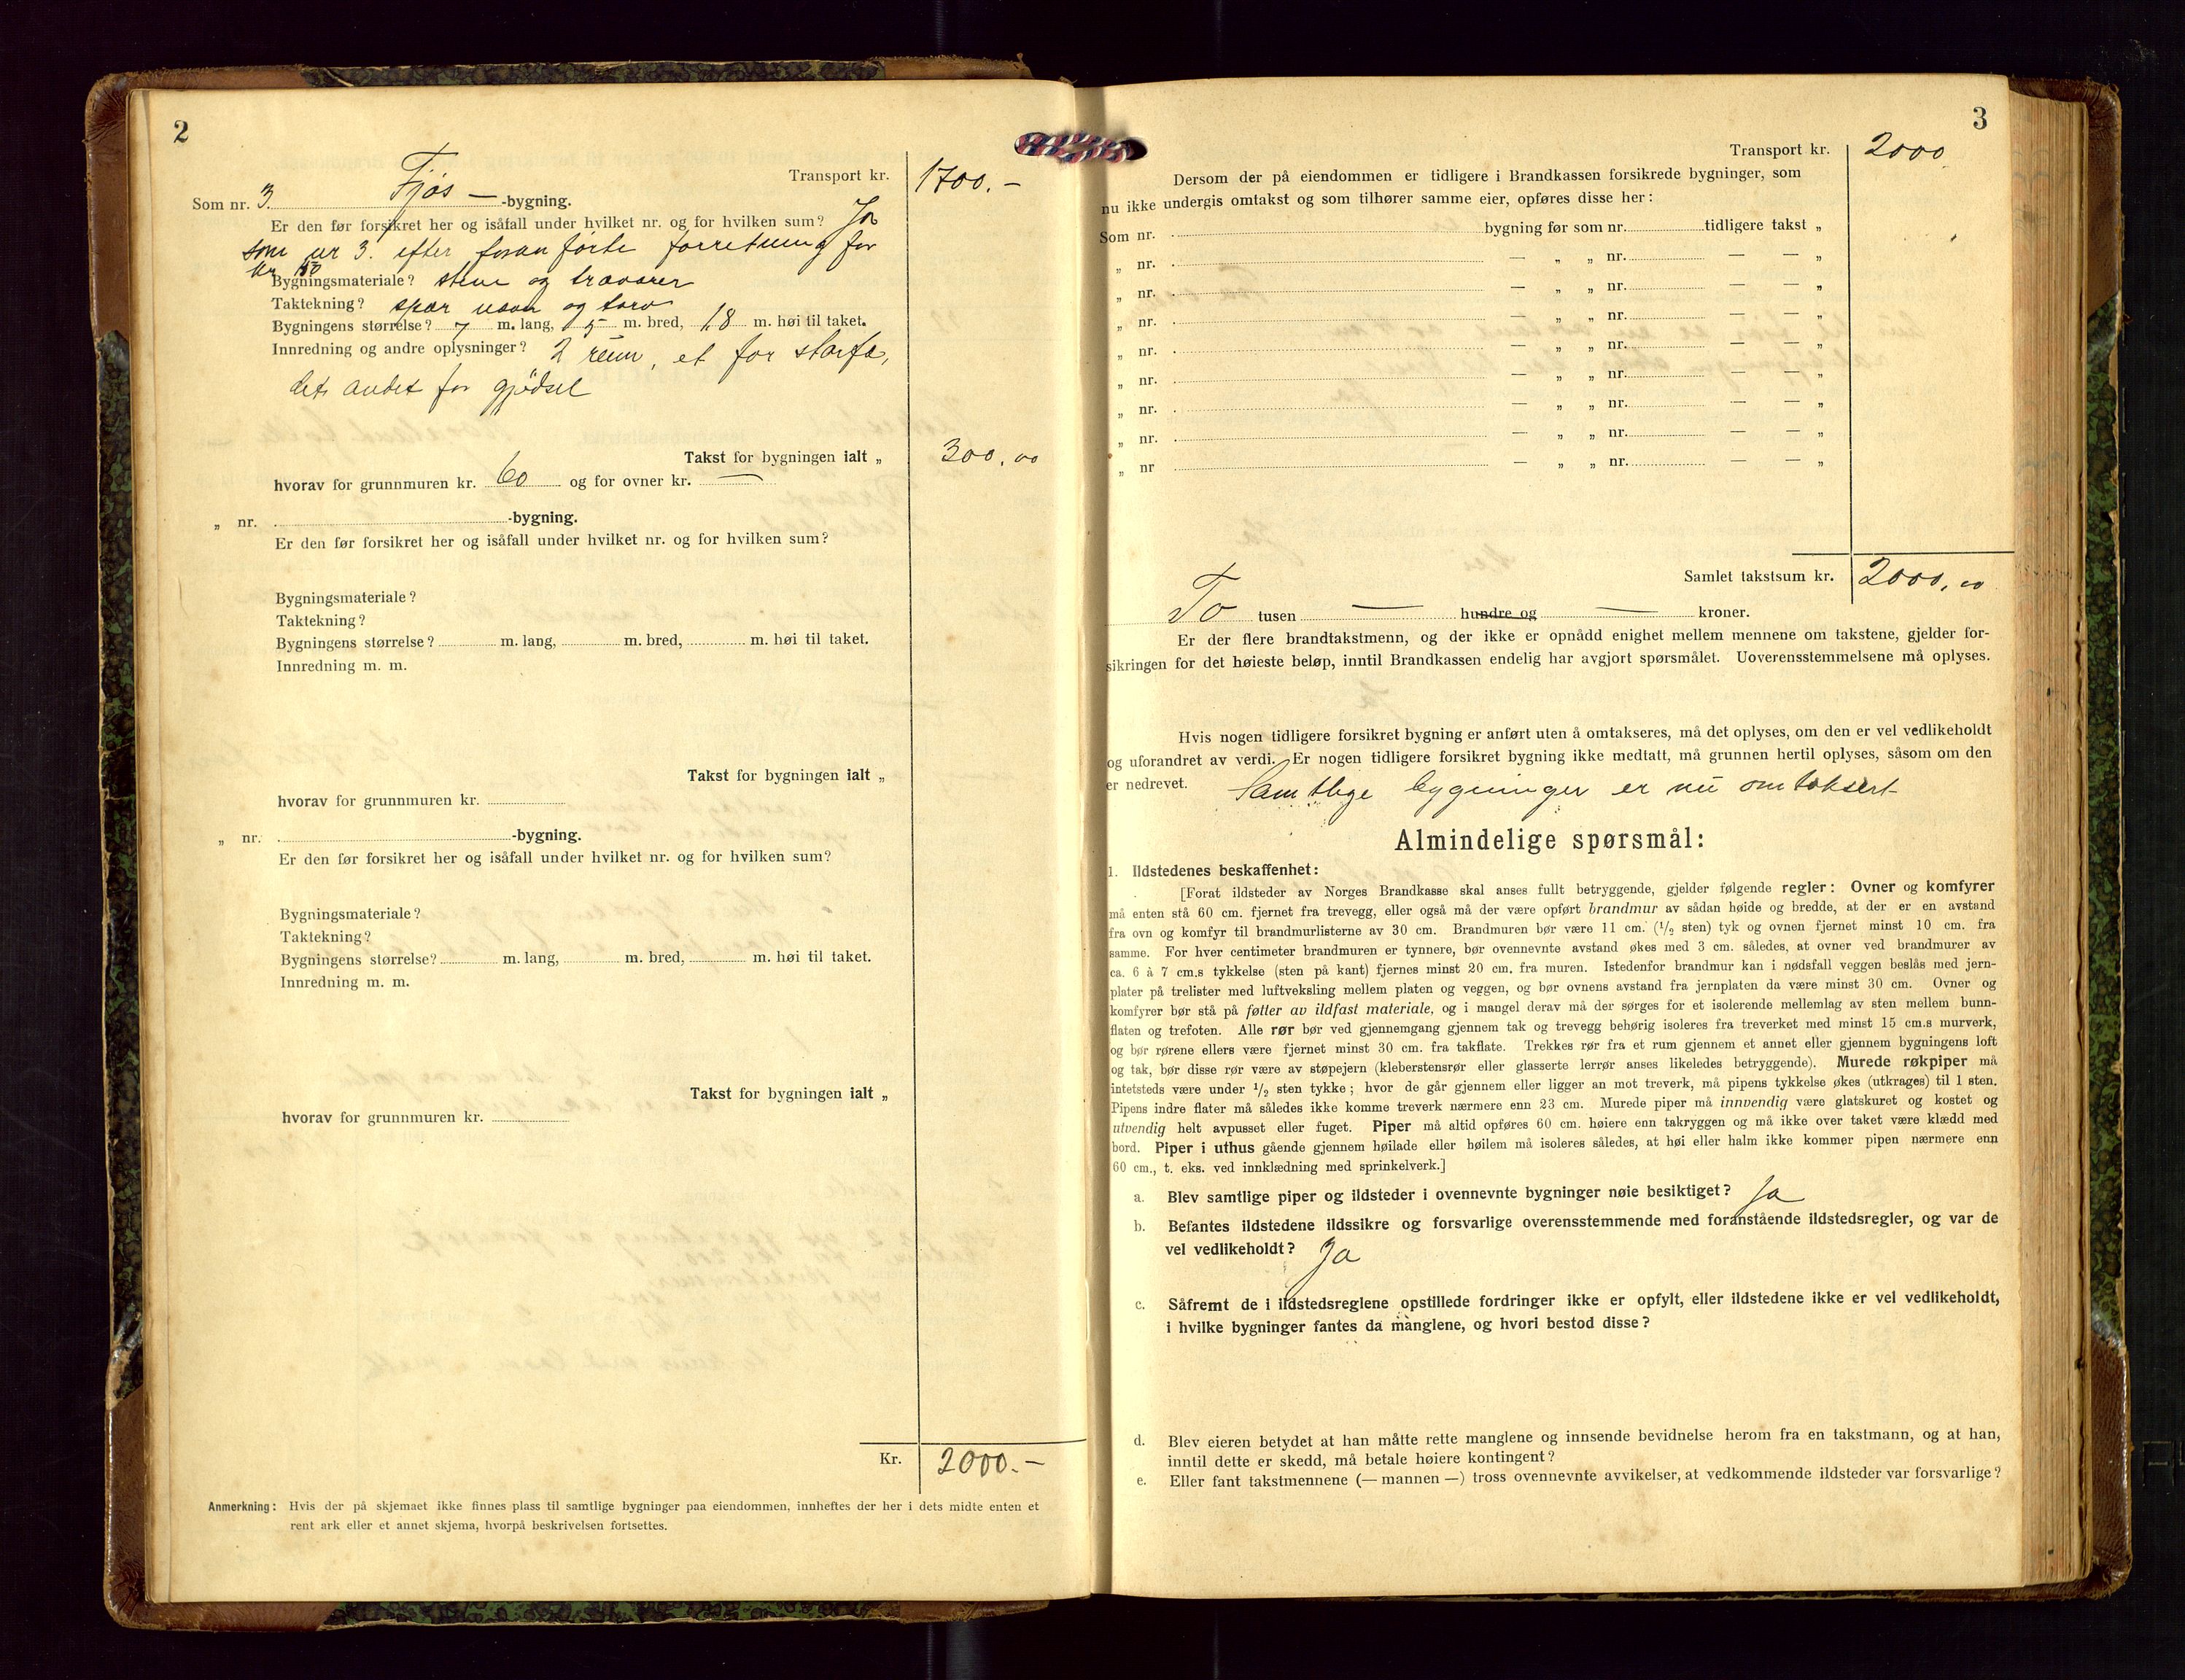 2
Transport kr. 1700.-
Som nr. 3. Fjøs — -bygning.
Er den før forsikret her og isåfall under hvilket nr. og for hvilken sum? Ja
som nr 3. efter foran førte forretning for
kr 150
Bygningsmateriale? stene og trævarer
Taktekning? spær næver og torv
Bygningens størrelse? 7 m. lang, 5 m. bred, 1,8 m. høi til taket.
Innredning og andre oplysninger? 2 rum, et for storfæ,
det andet for gjødsel
Takst for bygningen ialt „ 300,00
hvorav for grunnmuren kr. 60 og for ovner kr. —
„ nr. -bygning.
Er den før forsikret her og isåfall under hvilket nr. og for hvilken sum?
Bygningsmateriale?
Taktekning?
Bygningens størrelse? m. lang, m. bred, m. høi til taket.
Innredning m. m.
Takst for bygningen ialt „
hvorav for grunnmuren kr.
„ nr. -bygning.
Er den før forsikret her og isåfall under hvilket nr. og for hvilken sum?
Bygningsmateriale?
Taktekning?
Bygningens størrelse? m. lang, m. bred, m. høi til taket.
Innredning m. m.
Takst for bygningen ialt „
hvorav for grunnmuren kr.
Kr. 2000.-
Anmerkning: Hvis der på skjemaet ikke finnes plass til samtlige bygninger paa eiendommen, innheftes der her i dets midte enten et
rent ark eller et annet skjema, hvorpå beskrivelsen fortsettes.
3
Transport kr. 2000
Dersom der på eiendommen er tidligere i Brandkassen forsikrede bygninger, som
nu ikke undergis omtakst og som tilhører samme eier, opføres disse her:
Som nr. bygning før som nr. tidligere takst „
„ nr. — „ „ nr. — — „
„ nr. — „ „ nr. — — „
„ nr. — „ „ nr. — — „
„ nr. — „ „ nr. — — „
„ nr. — „ „ nr. — — „
„ nr. — „ „ nr. — — „
„ nr. — „ „ nr. — — „
„ nr — „ „ nr. — — „
Samlet takstsum kr. 2000,00
To tusen — hundre og — kroner.
Er der flere brandtakstmenn, og der ikke er opnådd enighet mellem mennene om takstene, gjelder for-
sikringen for det høieste beløp, inntil Brandkassen endelig har avgjort spørsmålet. Uoverensstemmelsene må oplyses.
Hvis nogen tidligere forsikret bygning er anført uten å omtakseres, må det oplyses, om den er vel vedlikeholdt
og uforandret av verdi. Er nogen tidligere forsikret bygning ikke medtatt, må grunnen hertil oplyses, såsom om den
er nedrevet. Samtlige bygninger er nu omtaksert
Almindelige spørsmål:
1. Ildstedenes beskaffenhet:
[Forat ildsteder av Norges Brandkasse skal anses fullt betryggende, gjelder følgende regler: Ovner og komfyrer
må enten stå 60 cm. fjernet fra trevegg, eller også må der være opført brandmur av sådan høide og bredde, at der er en avstand
fra ovn og komfyr til brandmurlisterne av 30 cm. Brandmuren bør være 11 cm. (1/2 sten) tyk og ovnen fjernet minst 10 cm. fra
samme. For hver centimeter brandmuren er tynnere, bør ovennevnte avstand økes med 3 cm. således, at ovner ved brandmurer av
ca. 6 à 7 cm.s tykkelse (sten på kant) fjernes minst 20 cm. fra muren. Istedenfor brandmur kan i nødsfall veggen beslås med jern-
plater på trelister med luftveksling mellem platen og veggen, og bør ovnens avstand fra jernplaten da være minst 30 cm. Ovner og
komfyrer bør stå på føtter av ildfast materiale, og i mangel derav må der sørges for et isolerende mellemlag av sten mellem bunn-
flaten og trefoten. Alle rør bør ved gjennemgang gjennem tak og trevegg behørig isoleres fra treverket med minst 15 cm.s murverk,
og bør rørene ellers være fjernet minst 30 cm. fra takflate. Trekkes rør fra et rum gjennem et annet eller gjennem bygningens loft
og tak, bør disse rør være av støpejern (kleberstensrør eller glasserte lerrør anses likeledes betryggende). Murede røkpiper må
intetsteds være under 1/2 sten tykke; hvor de går gjennem eller ligger an mot treverk, må pipens tykkelse økes (utkrages) til 1 sten.
Pipens indre flater må således ikke komme treverk nærmere enn 23 cm. Murede piper må innvendig være glatskuret og kostet og
utvendig helt avpusset eller fuget. Piper må altid opføres 60 cm. høiere enn takryggen og må ikke over taket være klædd med
bord. Piper i uthus gående gjennem høilade eller høilem må isoleres således, at høi eller halm ikke kommer pipen nærmere enn
60 cm., t. eks. ved innklædning med sprinkelverk.]
a. Blev samtlige piper og ildsteder i ovennevnte bygninger nøie besiktiget? Ja
b. Befantes ildstedene ildssikre og forsvarlige overensstemmende med foranstående ildstedsregler, og var de
vel vedlikeholdt? Ja
c. Såfremt de i ildstedsreglene opstillede fordringer ikke er opfylt, eller ildstedene ikke er vel vedlikeholdt,
i hvilke bygninger fantes da manglene, og hvori bestod disse?
d. Blev eieren betydet at han måtte rette manglene og innsende bevidnelse herom fra en takstmann, og at han,
inntil dette er skedd, må betale høiere kontingent?
e. Eller fant takstmennene (— mannen —) tross ovennevnte avvikelser, at vedkommende ildsteder var forsvarlige?